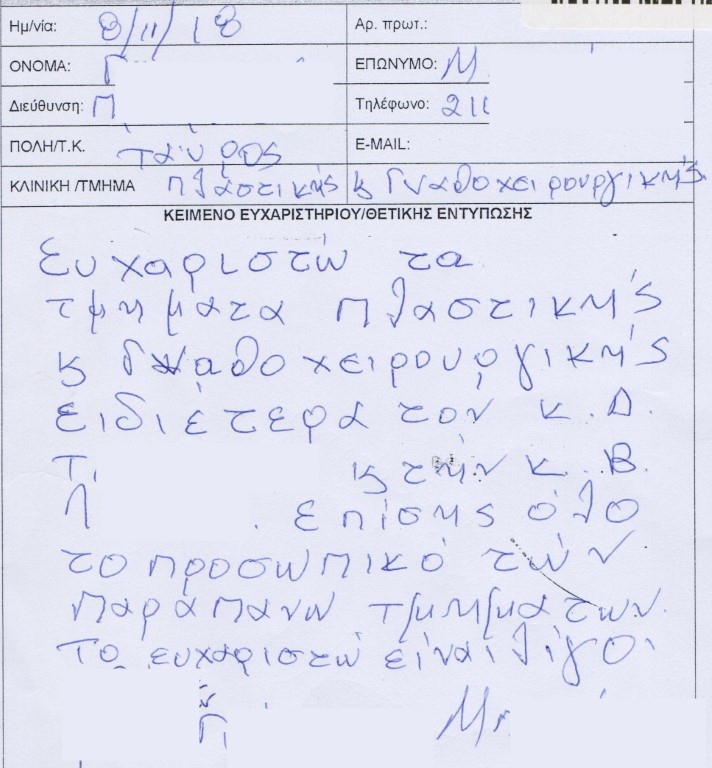 Ημ/νία: 8/11/18 Αρ. πρωτ.:
ΟΝΟΜΑ: Γ ΕΠΩΝΥΜΟ: Μ
Διεύθυνση: Π Τηλέφωνο: 21
ΠΟΛΗ/Τ.Κ. ταύρος E-MAIL:
ΚΛΙΝΙΚΗ /ΤΜΗΜΑ πλαστικής κ Γναθοχειρουργικής
ΚΕΙΜΕΝΟ ΕΥΧΑΡΙΣΤΗΡΙΟΥ/ΘΕΤΙΚΗΣ ΕΝΤΥΠΩΣΗΣ
Ευχαριστώ τα
τμηματα πλαστικής
κ Γναθοχειρουργικής
ειδιέτερα τον κ. Δ.
Τ. κ την κ. Β.
Λ. επίσης όλο
το προσωπικό τών
παραπανω τμημματων
Το ευχαριστώ είναι λίγο.